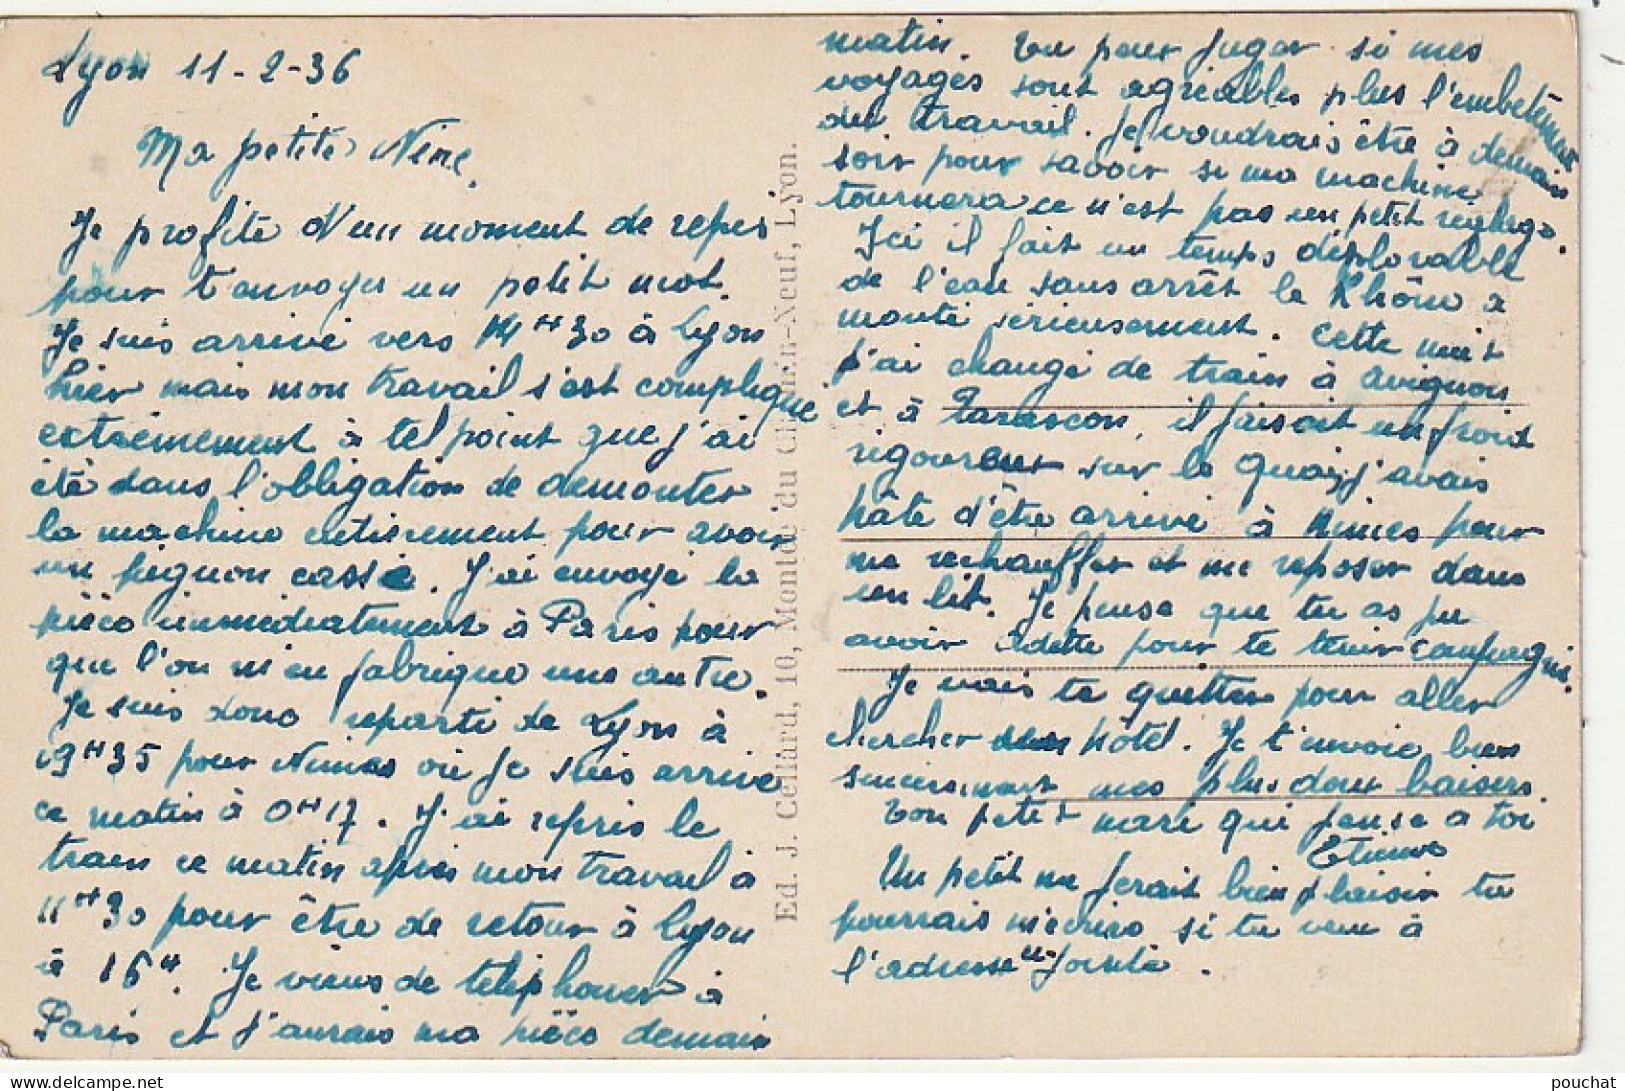 Lyon 11-2-36
Ma petite Nine,
Je profite d'un moment de repos
pour t'envoyer un petit mot.
Je suis arrivé vers 14H30 à Lyon
hier mais mon travail s'est compliqué
extrêmement à tel point que j'ai
été dans l'obligation de démonter
la machine entièrement pour avoir
un pignon cassé. J'ai envoyé la
pièce immédiatement à Paris pour
que l'on m'en fabrique une autre.
Je suis donc reparti de Lyon à
19H35 pour Nimes où je suis arrivé
ce matin à 0H17. J'ai repris le
train ce matin après mon travail à
11H30 pour être de retour à Lyon
à 16H. Je viens de téléphoner à
Paris et j'aurais ma pièce demain
matin. Tu peux juger si mes
voyages sont agréables plus l'embêtement
du travail. Je voudrais être à demain
soir pour savoir si ma machine
tournera ce n'est pas un petit réglage.
Ici il fait un temps déplorable
de l'eau sans arrêt le Rhône a
monté sérieusement. Cette nuit
j'ai changé de train à Avignon
et à Tarascon, il faisait un froid
rigoureux sur le quai, j'avais
hâte d'être arrivé à Nimes pour
me rechauffer et me reposer dans
un lit. Je pense que tu as pu
avoir Odette pour te tenir compagnie.
Je vais te quitter pour aller
chercher un hôtel. Je t'envoie bien
sincèrement mes plus doux baisers.
Ton petit mari qui pense à toi
Etienne
Un petit me ferait bien plaisir tu
pourrais m'écrire si tu veux à
l'adresse ci-jointe.
Ed. J. Cellard, 10, Montée du Chemin-Neuf, Lyon.
pouchat
© delcampe.net